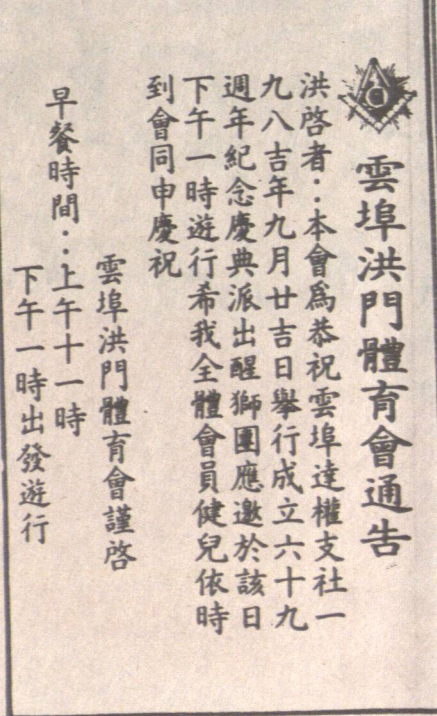 雲埠洪門體育會通告
洪啓者：本會爲恭祝雲埠達權支社一
九八吉年九月廿吉日舉行成立六十九
週年紀念慶典派出醒獅團應邀於該日
下午一時遊行希我全體會員健兒依時
到會同申慶祝
雲埠洪門體育會謹啓
早餐時間：上午十一時
下午一時出發遊行